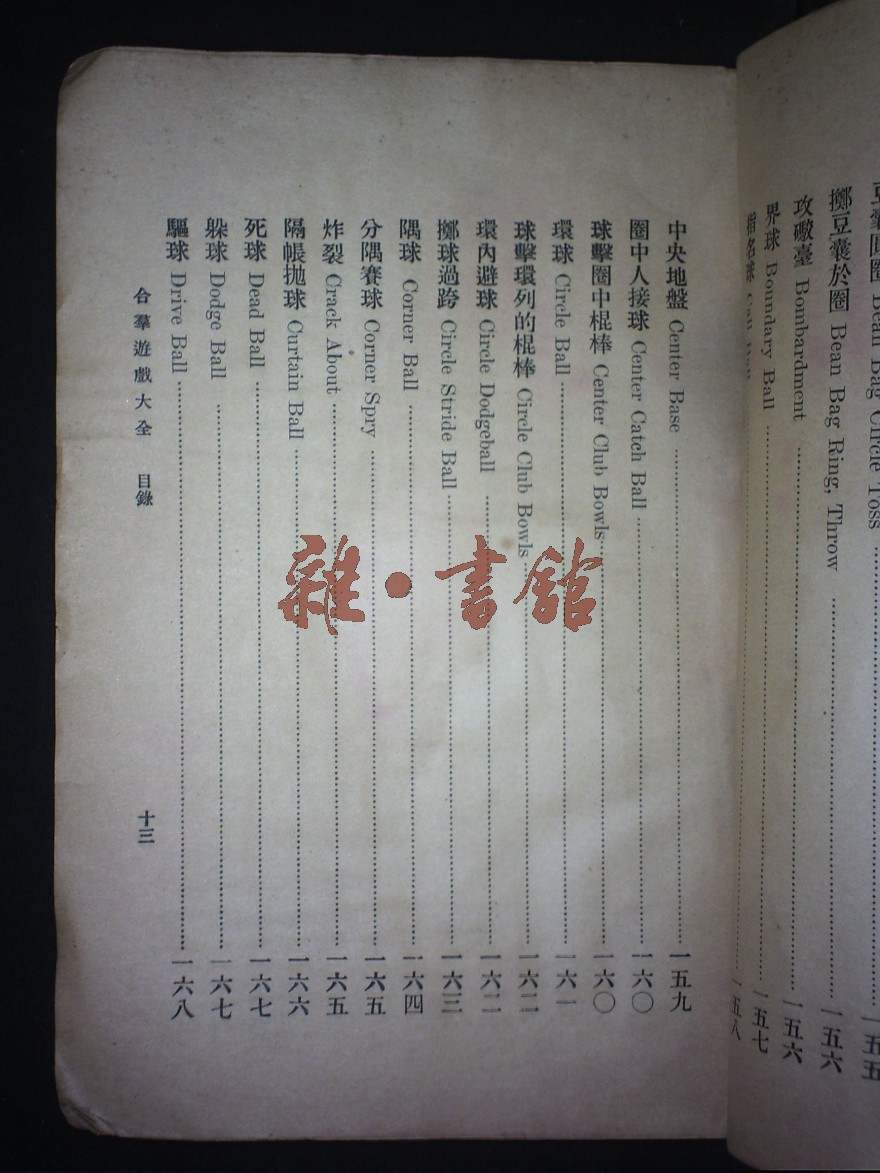 豆囊圓圈 Bean Bag Circle Toss 一五五
擲豆囊於圈 Bean Bag Ring, Throw 一五六
攻礮臺 Bombardment 一五六
界球 Boundary Ball 一五七
指名球 Call Ball 一五八
中央地盤 Center Base 一五九
圈中人接球 Center Catch Ball 一六〇
球擊圈中棍棒 Center Club Bowls 一六〇
環球 Circle Ball 一六一
球擊環列的棍棒 Circle Club Bowls 一六二
環內避球 Circle Dodgeball 一六二
擲球過跨 Circle Stride Ball 一六三
隅球 Corner Ball 一六四
分隅賽球 Corner Spry 一六五
炸裂 Crack About 一六五
隔帳拋球 Curtain Ball 一六六
死球 Dead Ball 一六七
躲球 Dodge Ball 一六七
驅球 Drive Ball 一六八
合羣遊戲大全 目錄 十三
雜·書館